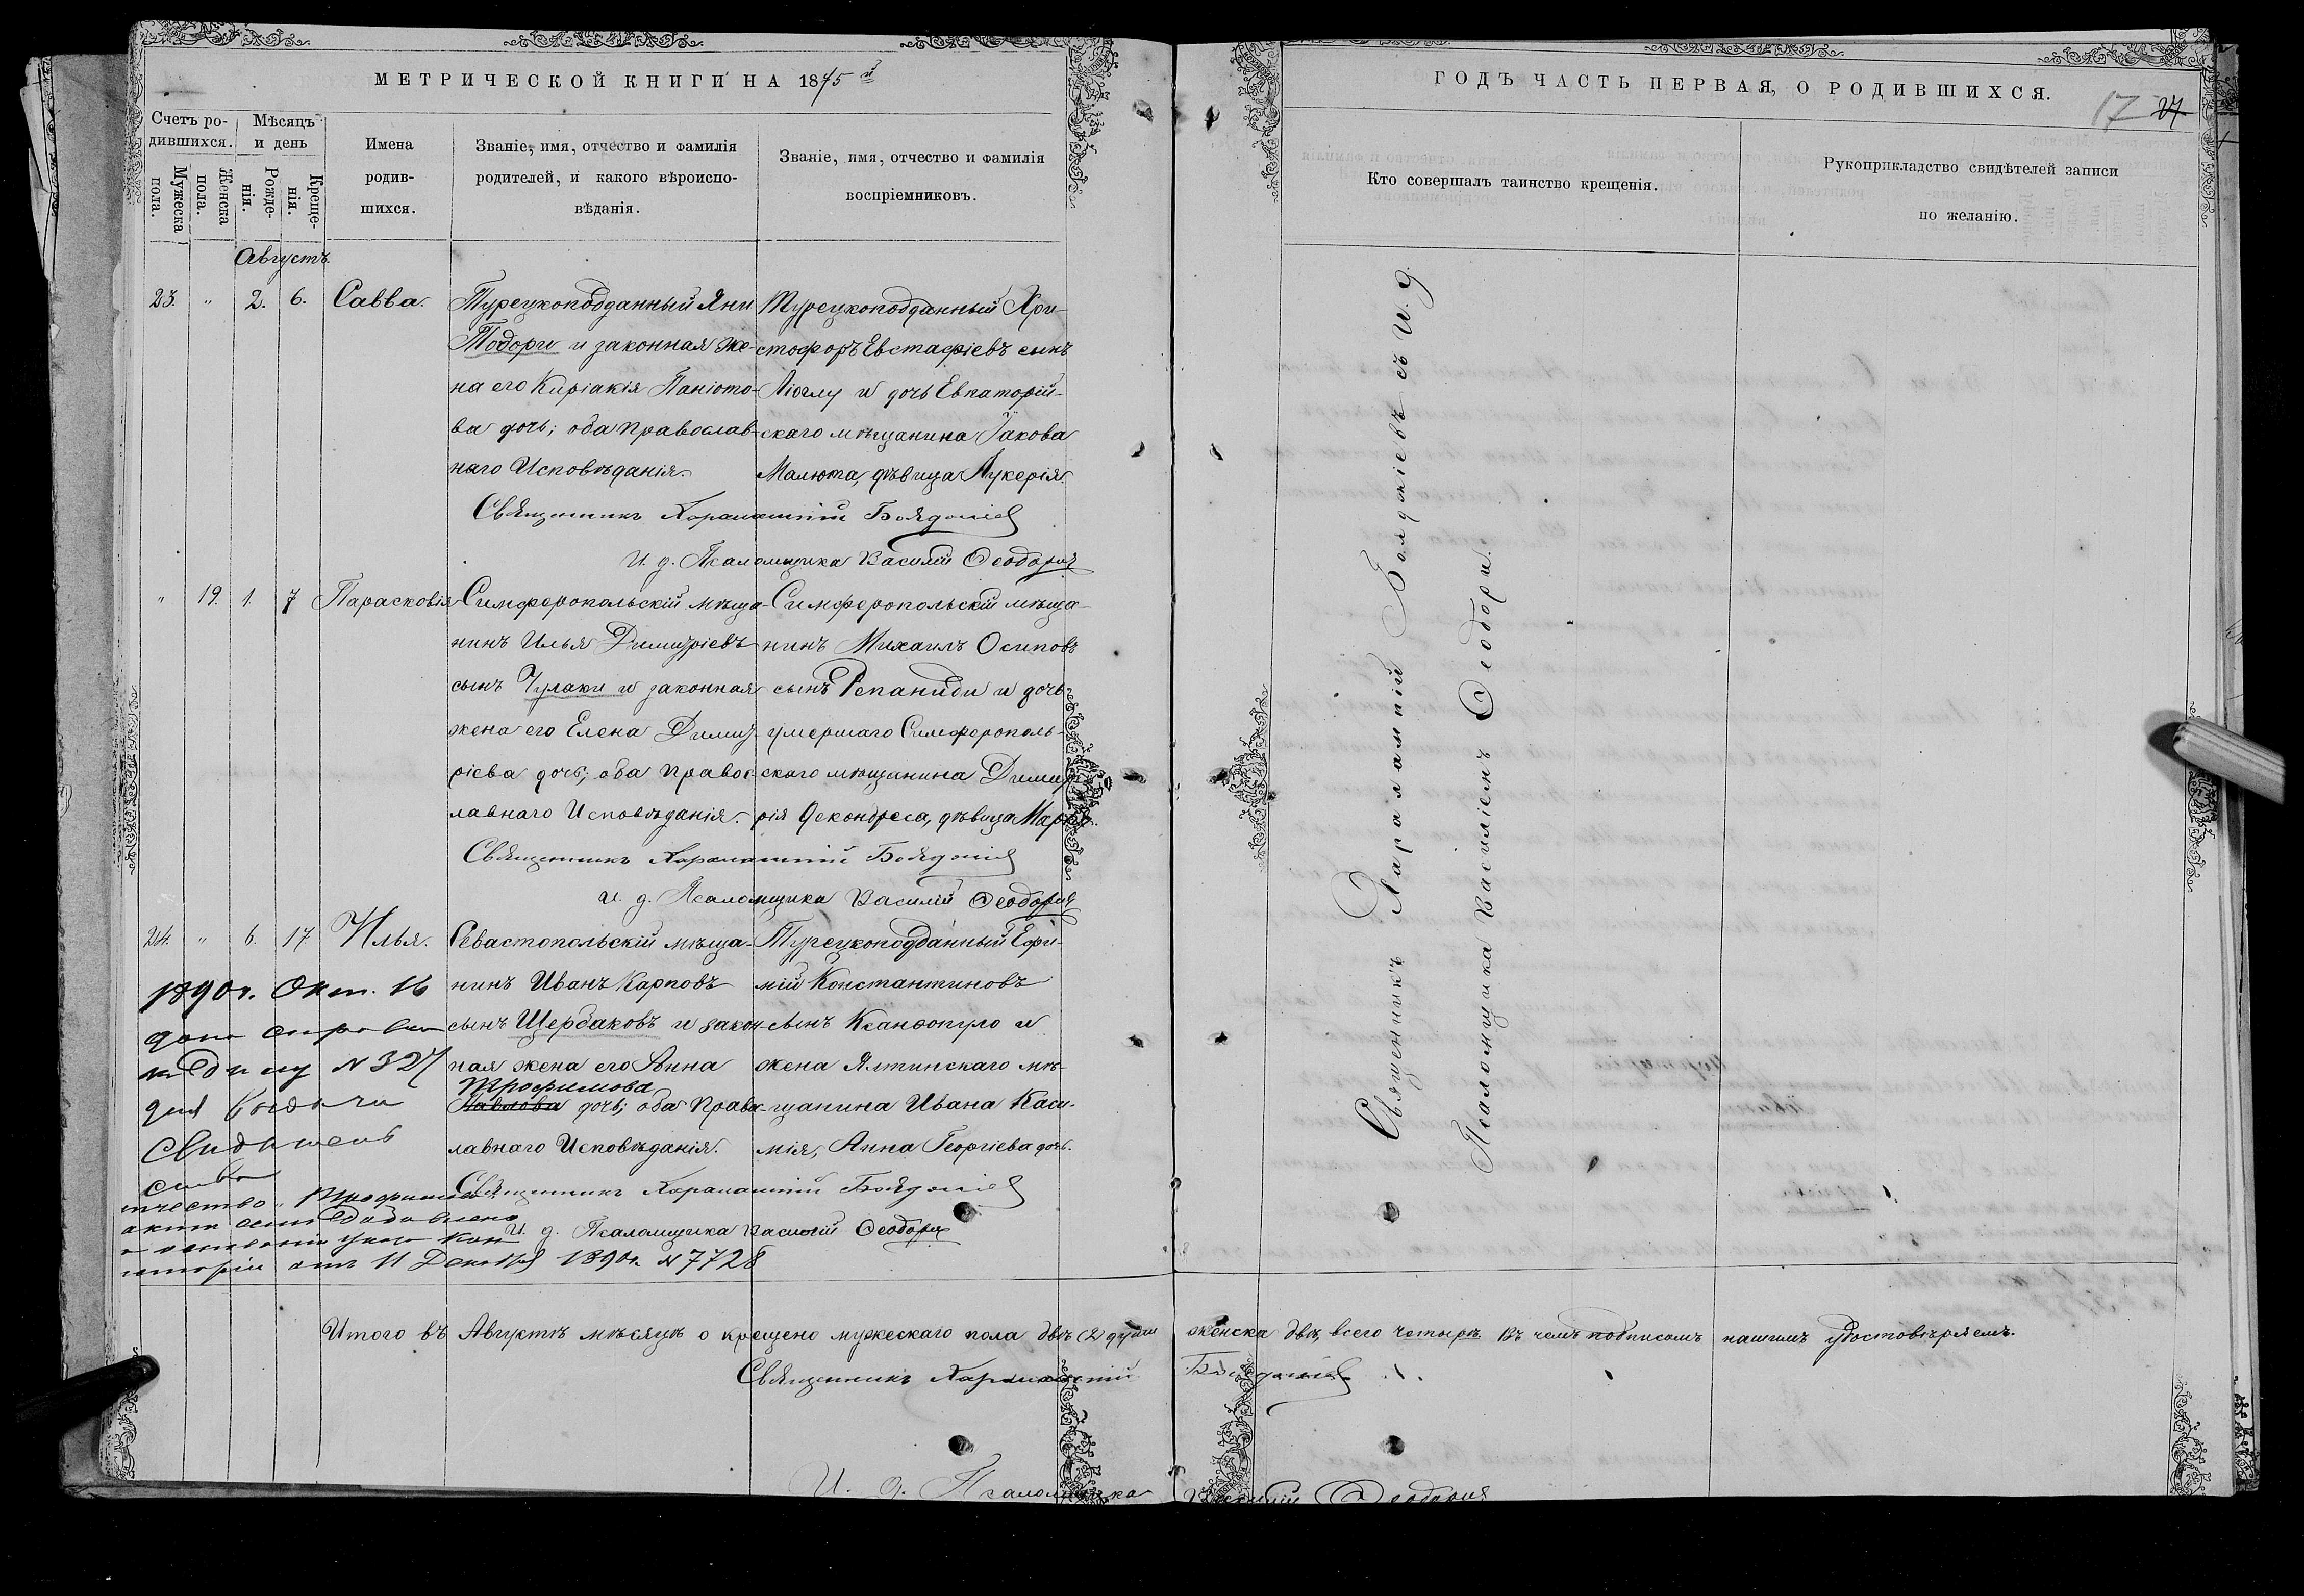 МЕТРИЧЕСКОЙ КНИГИ НА 1875 й
ГОДЪ ЧАСТЬ ПЕРВАЯ, О РОДИВШИХСЯ.
17 27
Счетъ ро-
дившихся.
Мужеска пола.
Женска пола.
Мѣсяцъ
и день
Рожде-
нія.
Креще-
нія.
Имена
родив-
шихся.
Званіе, имя, отчество и фамилія
родителей, и какого вѣроиспо-
вѣданія.
Званіе, имя, отчество и фамилія
воспріемниковъ.
Кто совершалъ таинство крещенія.
Рукоприкладство свидѣтелей записи
по желанію.
Августъ.
23. " 2. 6. Савва.
Турецкоподданный Яни
Тодори и законная же-
на его Киріакія Паніото-
ва дочь; оба православ-
наго Исповѣданія.
Турецкоподданный Хри-
стофоръ Евстафіевъ сынъ
Ліоглу и дочь Евпаторій-
скаго мѣщанина Іакова
Малюта, дѣвица Лукерія.
Священникъ Харалампій Бояджіевъ
И. д. Псаломщика Василій Ѳеодори
" 19. 1. 7 Парасковія
Симферопольскій мѣща-
нинъ Илья Димитріевъ
сынъ Чулаки и законная
жена его Елена Димит-
ріева дочь; оба правос-
лавнаго Исповѣданія.
Симферопольскій мѣща-
нинъ Михаилъ Осиповъ
сынъ Репаниди и дочь
умершаго Симферополь-
скаго мѣщанина Димит-
рія Деконфеса, дѣвица Марѳа.
Священникъ Харалампій Бояджіевъ
И. д. Псаломщика Василій Ѳеодори
24. " 6. 17 Илья.
Севастопольскій мѣща-
нинъ Иванъ Карповъ
сынъ Щербаковъ и закон-
ная жена его Анна
Трофимова
Павлова дочь; оба Правос-
лавнаго Исповѣданія.
Турецкоподданный Ефи-
мій Константиновъ
сынъ Ксанѳопуло и
жена Ялтинскаго мѣ-
щанина Ивана Каси-
мія, Анна Георгіева дочь.
Священникъ Харалампій Бояджіевъ
И. д. Псаломщика Василій Ѳеодори
1890 г. Окт. 16
дана справка
къ дѣлу N 327
для выдачи
свидѣтель
ства
отчество "Трофимова"
консис
торіи отъ 11 Декабря 1890 г. N 7728
Священникъ Харалампій Бояджіевъ съ И. д.
Псаломщика Василіемъ Ѳеодори.
Итого въ Августѣ мѣсяцѣ окрещено мужескаго пола двѣ (2) души женска двѣ, всего четыре. Въ чемъ подписомъ нашимъ удостовѣряемъ.
Священникъ Харалампій Бояджіевъ
И. д. Псаломщика Василій Ѳеодори